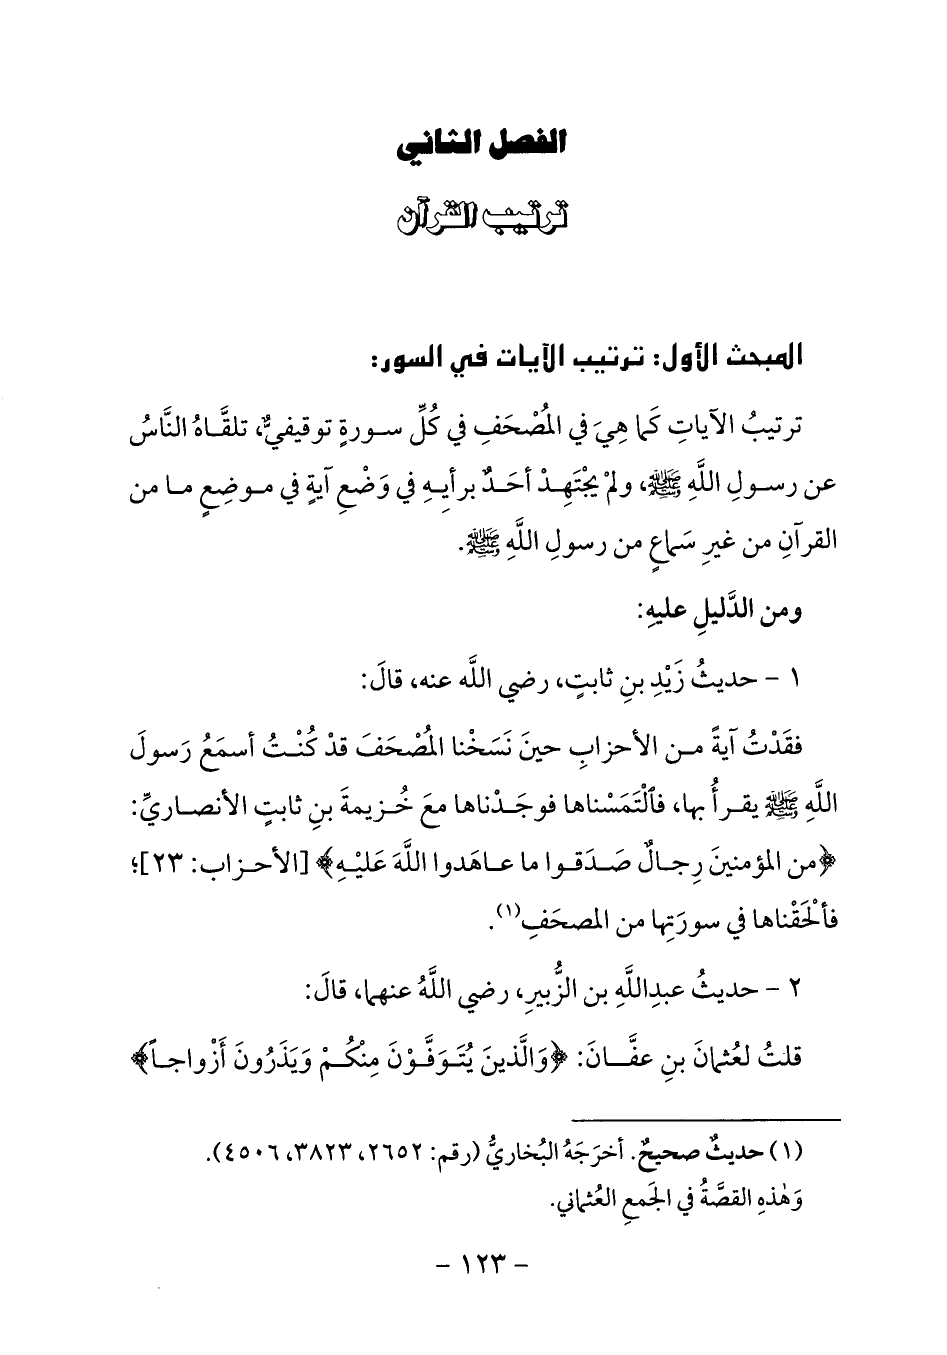 الفصل الثاني
ترتيب القرآن
المبحث الأول: ترتيب الآيات في السور:
ترتيبُ الآياتِ كَما هِيَ في المُصْحَفِ في كُلِّ سورةٍ توقيفيٌّ، تلقَّاهُ النَّاسُ
عن رسولِ اللَّهِ ﷺ، ولمْ يجْتَهِدْ أحَدٌ برأيِهِ في وَضْعِ آيةٍ في موضِعٍ ما من
القرآنِ من غيرِ سَماعٍ من رسولِ اللَّهِ ﷺ.
ومن الدَّليلِ عليهِ:
١ - حديثُ زَيْدِ بنِ ثابتٍ، رضي اللَّه عنه، قالَ:
فقَدْتُ آيةً من الأحزابِ حينَ نَسَخْنا المُصْحَفَ قدْ كُنْتُ أسمَعُ رَسولَ
اللَّهِ ﷺ يقرأُ بها، فٱلْتَمَسْناها فوجَدْناها معَ خُزيمةَ بنِ ثابتٍ الأنصاريِّ:
﴿من المؤمنينَ رِجالٌ صَدَقوا ما عاهَدوا اللَّهَ عَليْهِ﴾ [الأحزاب: ٢٣]؛
فألْحَقْناها في سورَتِها من المصحَفِ(١).
٢ - حديثُ عبدِاللَّهِ بن الزُّبيرِ، رضي اللَّهُ عنهما، قالَ:
قلتُ لعُثمانَ بنِ عفَّانَ: ﴿وَالَّذينَ يُتَوَفَّوْنَ مِنْكُمْ وَيَذَرُونَ أَزْواجاً﴾
(١) حديثٌ صحيحٌ. أخرَجَهُ البُخاريُّ (رقم: ٢٦٥٢، ٣٨٢٣، ٤٥٠٦).
وَهٰذهِ القصَّةُ في الجَمعِ العُثماني.
- ١٢٣ -